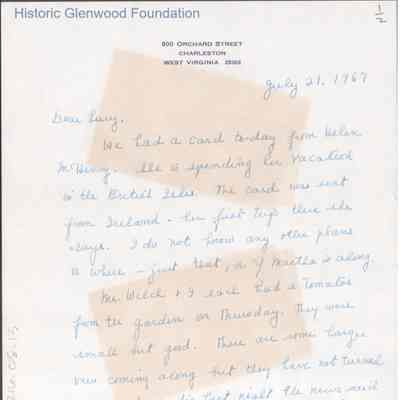 Historic Glenwood Foundation
1/2
800 ORCHARD STREET
CHARLESTON
WEST VIRGINIA 25302
July 21, 1967
Dear Lucy,
We had a card to-day from Helen
She is spending her vacation
in the British Isles. The card was sent
from Ireland - her first trip there she
says. I do not know any other plans
or where - just that, or if Martha is along.
Mr. Welch & I each had a tomatoe
from the garden on Thursday. They were
small but good. There are some larger
ones coming along but they have not turned
last night the news said